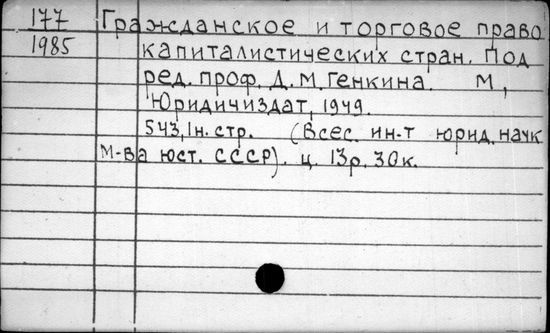 177 Гражданское и торговое право
1985 капиталистических стран. Под
ред. проф. Д.М. Генкина. М,
Юридичиздат, 1949.
543, 1н. стр. (Всес. ин-т юрид. наук
м-ва юст. СССР). ц. 13р. 30к.